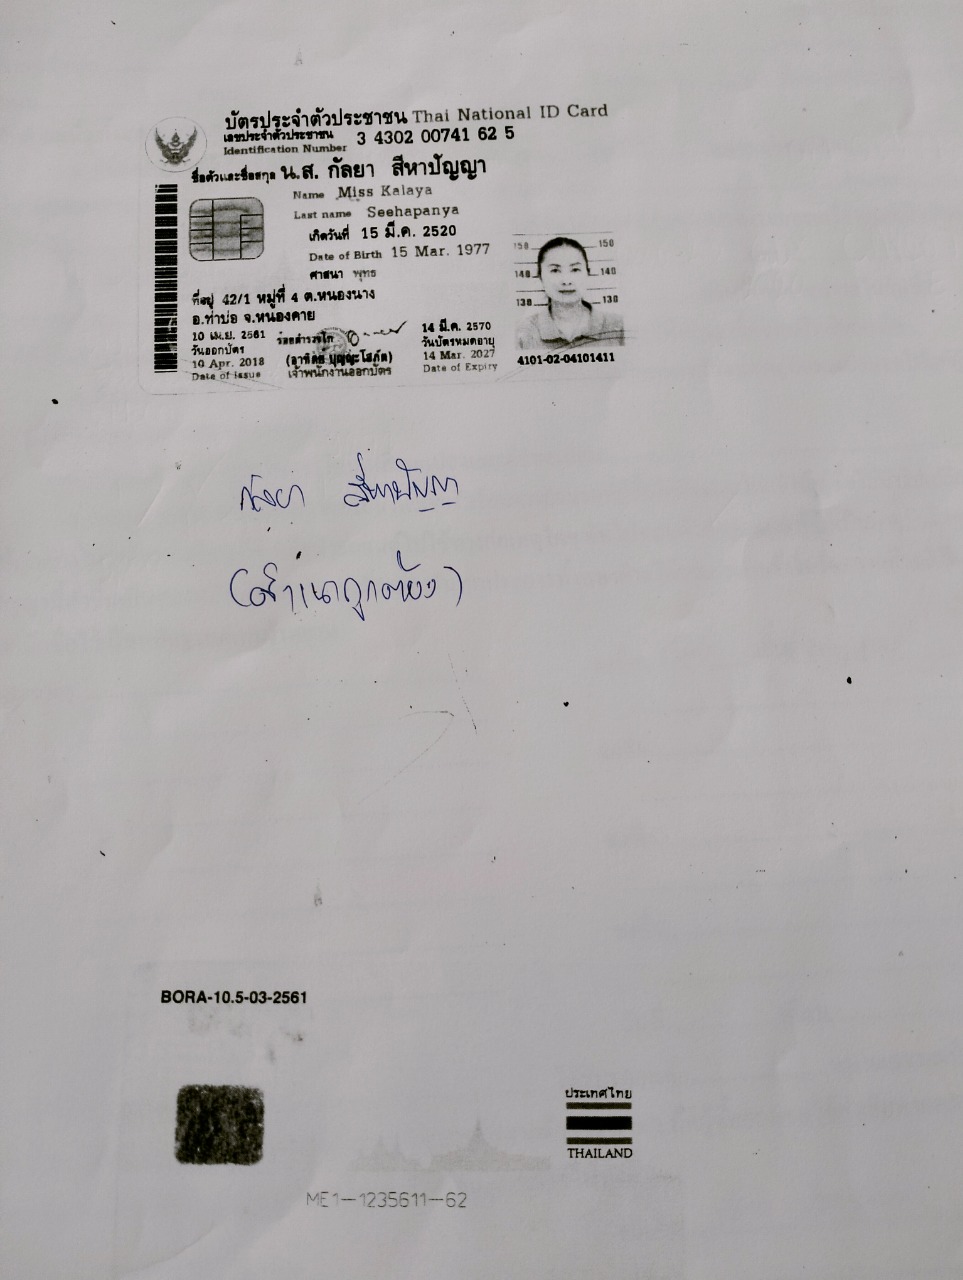 บัตรประจำตัวประชาชน Thai National ID Card
เลขประจำตัวประชาชน
Identification Number 3 4302 00741 62 5
ชื่อตัวและชื่อสกุล น.ส. กัลยา สีหาปัญญา
Name Miss Kalaya
Last name Seehapanya
เกิดวันที่ 15 มี.ค. 2520
Date of Birth 15 Mar. 1977
ศาสนา พุทธ
ที่อยู่ 42/1 หมู่ที่ 4 ต.หนองนาง
อ.ท่าบ่อ จ.หนองคาย
10 เม.ย. 2561
วันออกบัตร
10 Apr. 2018
Date of Issue
ร้อยตำรวจโท
เจ้าพนักงานออกบัตร
14 มี.ค. 2570
วันบัตรหมดอายุ
14 Mar. 2027
Date of Expiry
150 150
140 140
130 130
4101-02-04101411
กัลยา สีหาปัญญา
(สำเนาถูกต้อง)
BORA-10.5-03-2561
ประเทศไทย
THAILAND
ME1-1235611-62